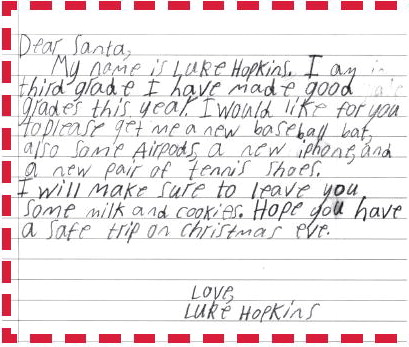 Dear Santa,
My name is Luke Hopkins. I am in
third grade I have made good
grades this year. I would like for you
to please get me a new baseball bat,
also some Airpods, a new iphone, and
a new pair of tennis shoes.
I will make sure to leave you
some milk and cookies. Hope you have
a safe trip on christmas eve.
Love,
Luke Hopkins